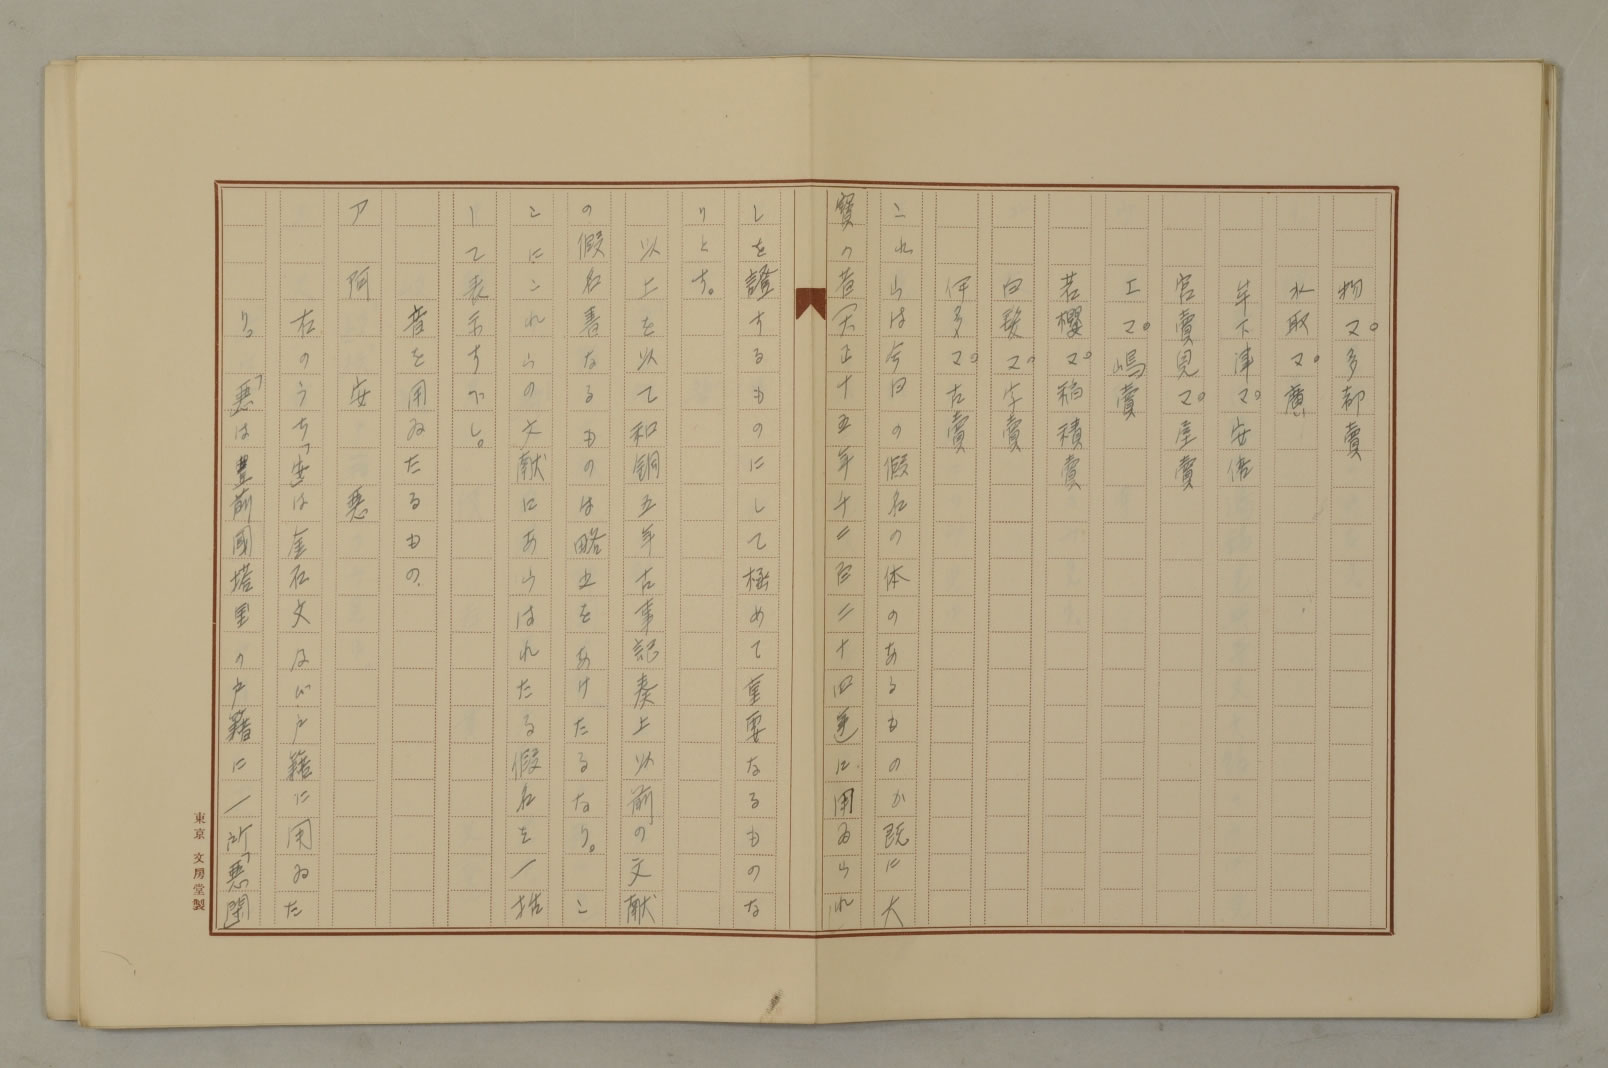 物マ。多都賣
水取マ。廣
牟下津マ。安倍
宮賣児マ。屋賣
工マ。嶋賣
若櫻マ。稲積賣
白髪マ。字賣
伊多マ。古賣
これらは今日の假名の体のあるものか既に大
寶の昔大正十五年千二百二十四選に用ゐられ
しを證するものにして極めて重要なるものな
りとす。
以上を以て和銅五年古事記奏上以前の文献
の假名書なるものは略之をあけたるなり。こ
こにこれらの文献にあらはれたる假名を一括
して表示すべし。
音を用ゐたるもの
ア 阿 安 悪
右のうち「安は金石文及び戸籍に用ゐた
り。「悪は豊前國塔里の戸籍に一所「悪閇
東京 文房堂製